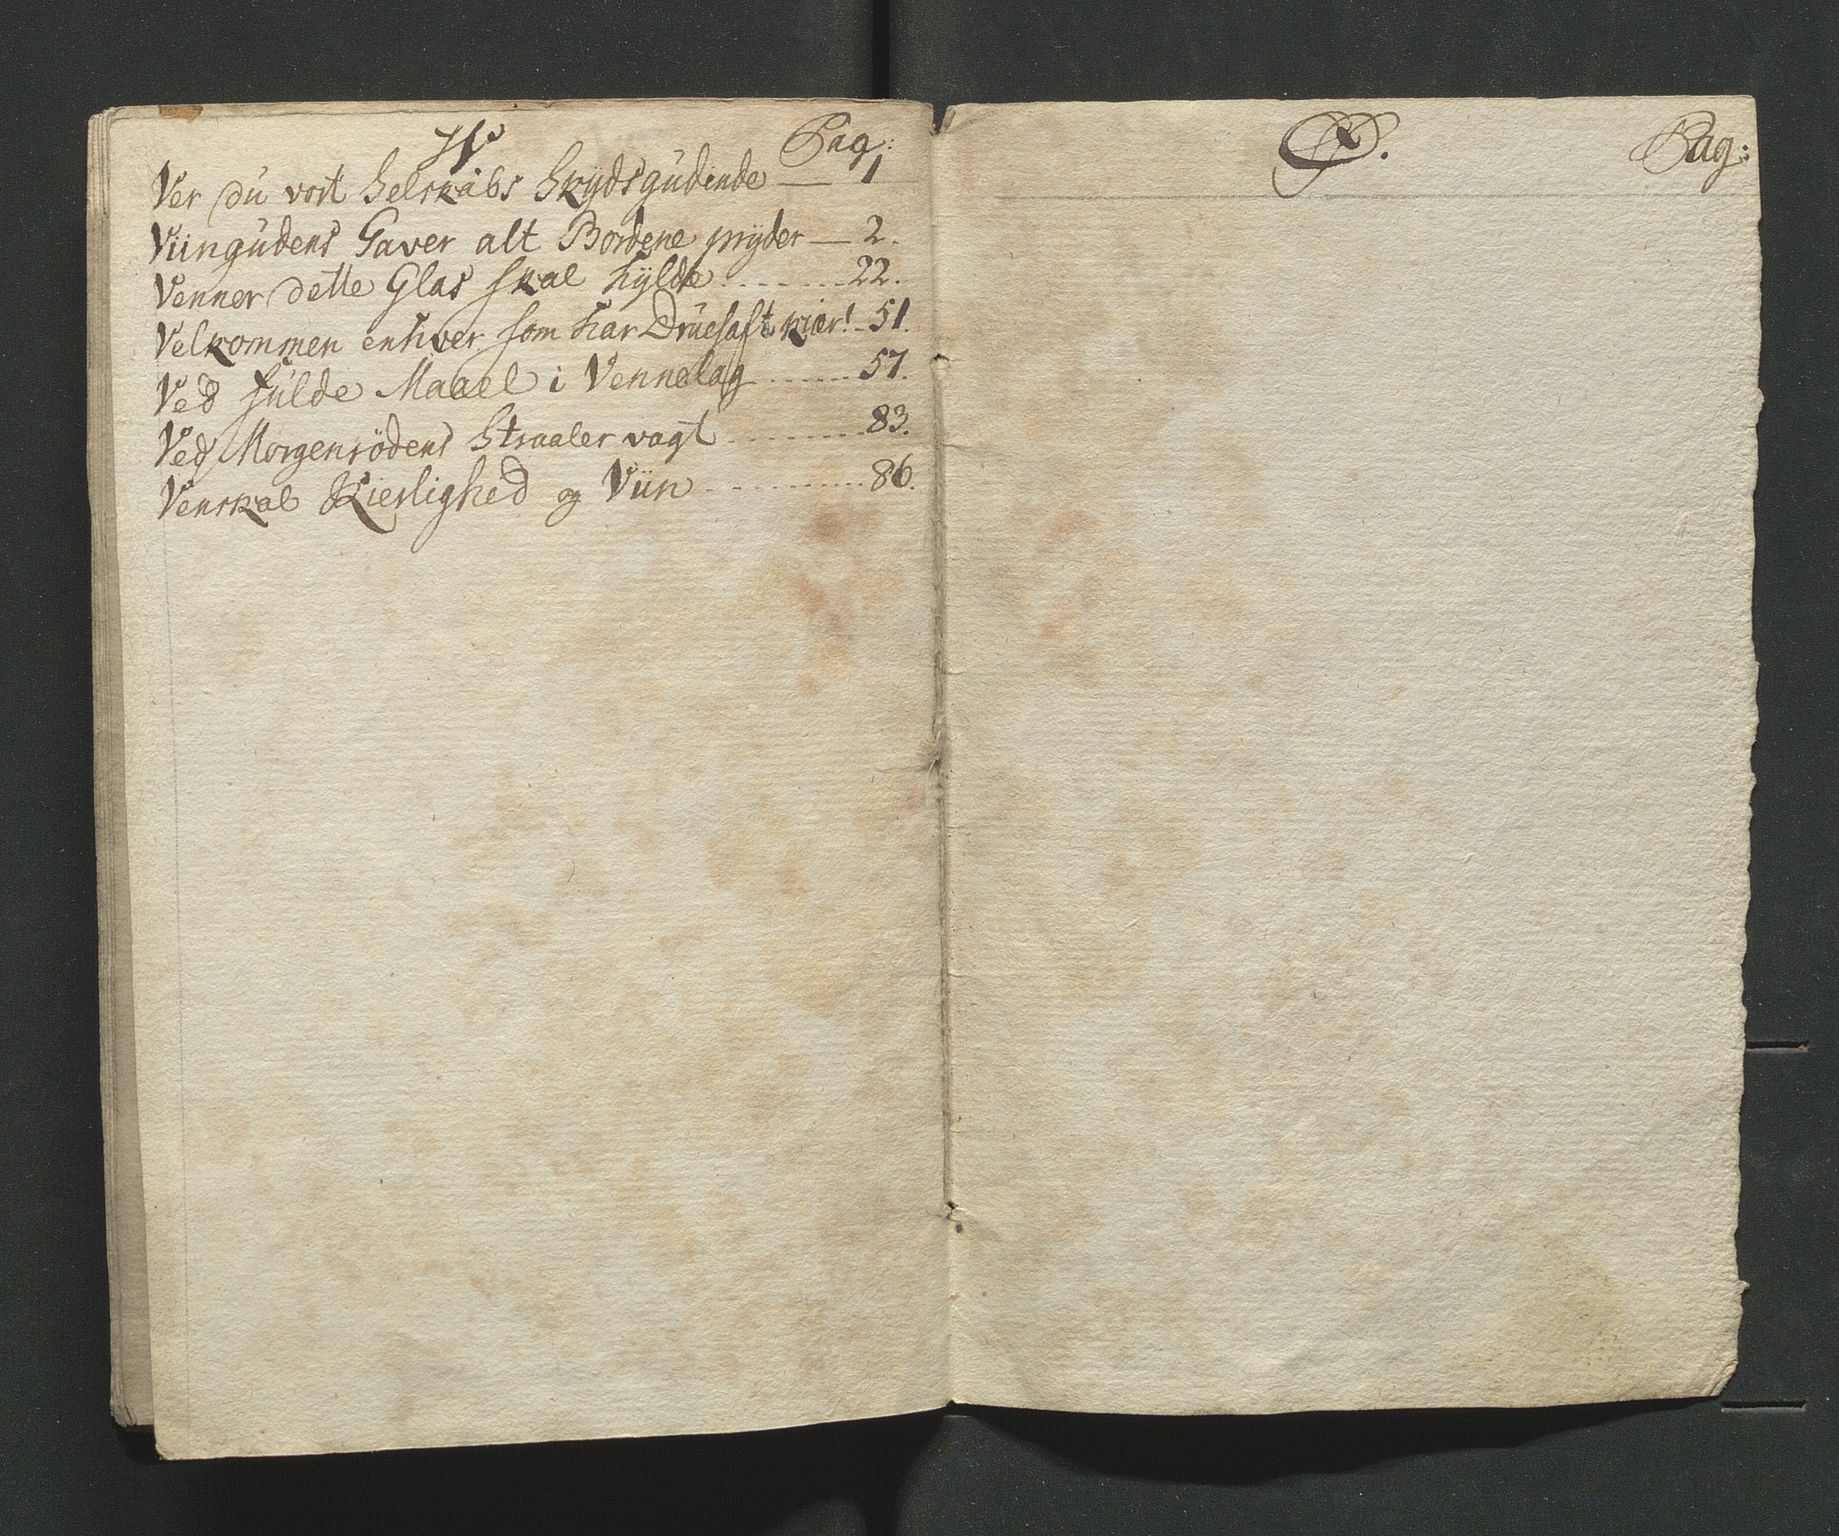 W Pag:
Ver du vort Selskabs Skydsgudinde — 1
Viingudens Gaver alt Bordene pryder — 2.
Venner dette Glas skal hylde ........ 22.
Velkommen enhver som har Druesaft kiær! .. 51.
Ved fulde Maael i Vennelag ........ 57.
Ved Morgenrödens Straaler vagt ......... 83.
Venskab Kierlighed og Viin ........... 86.
Pag: